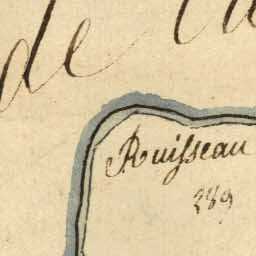 de
Ruisseau
289